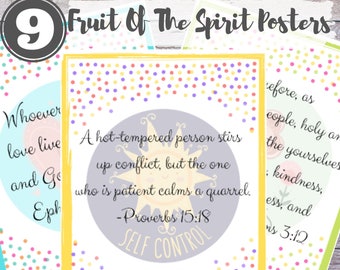 9 Fruit Of The Spirit Posters
Whoever
love live
and Go
Eph
A hot-tempered person stirs
up conflict, but the one
who is patient calms a quarrel.
-Proverbs 15:18
SELF CONTROL
efore, as
eople, holy an
the yourselves
kindness,
ess, and
ns 3:12